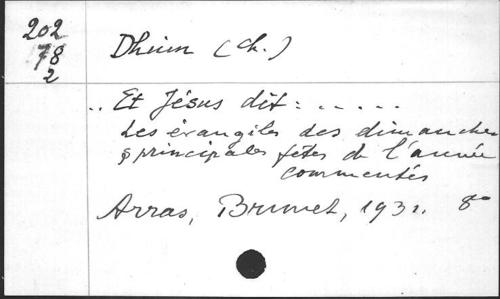 202
78
2
Dhuin (Ch.)
.. Et Jésus dit : .....
Les évangiles des dimanches
& principales fêtes de l'année
commentés
Arras, Brunet, 1931. 8°